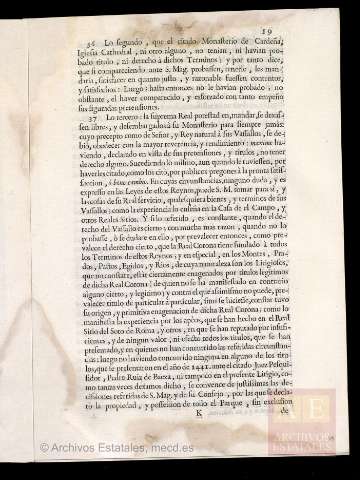 19
36 Lo segundo, que el citado Monasterio de Cardeña,
Iglesia Cathedral, ni otro alguno, no tenian, ni havian pro-
bado titulo, ni derecho à dichos Terminos; y por tanto dice,
que si compareciendo ante S. Mag. probassen, tenerle, los man-
daria, satisfacer en quanto justo, y razonable fuessen contentos,
y satisfechos: Luego hasta entonces no le havian probado; no
obstante, el haver comparecido, y esforzado con tanto empeño
sus figuradas pretensiones.
37 Lo tercero: la suprema Real potestad en, mandar, se
fassen libres, y desembargados à su Monasterio para siempre jamàs:
cuyo precepto como de Señor, y Rey natural à sus Vassallos, se de-
biò, obedecer con la mayor reverencia, y rendimiento: no
viendo, declarado en vista de sus pretensiones, y titulos, no tener
derecho alguno. Sucediendo lo mismo, aun quando le tuviessen, por
haverles citado, como los citò, por publicos pregones à la pronta satis-
faccion, En cuyas circunstancias, ninguno duda, y es
expresso en las Leyes de estos Reynos, puede S. M. tomar para sì, y
la cosas de su Real servicio, qualesquiera bienes, y terminos de sus
Vassallos; como la experiencia lo enseña en la Casa de el Campo, y
otros Reales Sitios. Y si lo referido, es constante, quando el dere-
cho del Vassallo es cierto; con mucha mas razon, quando no lo
probasse, ò se dudare en ello, por prevalecer entonces, como pre-
valece el derecho cierto, que la Real Corona tiene fundado à todos
los Terminos de estos Reynos; y en especial, en los Montes, Pra-
dos, Pastos, Egidos, y Rios, de cuya naturaleza son los Litigiosos,
que no constare, estàr ciertamente exagerados por titulos legitimos
de dicha Real Corona: de quien no se ha manifestado en contrario
alguno cierto, y legitimo; y contra el que assimismo no puede, pre-
valecer titulo de particular à particular, sino se hiciesse, constar tuvo
su origen, y primitiva enagenacion de dicha Real Corona; como lo
manifiesta la experiencia por los apeos, que se han hecho en el Real
Sitio del Soto de Roma, y otros, en que se han reputado por insufi-
cientes, y de ningun valor, ni efecto todos los titulos, que se han
presentado, y en quienes no han concurrido las referidas circunstan-
cias: luego no haviendo concurrido ninguna en alguno de los titu-
los, que se presentaron en el año de 1441. ante el citado Juez Pesqui-
sidor, Pedro Ruiz de Baeza, ni tampoco en el presente Litigio, co-
mo tantas veces decimos dicho, se convence de justissimas las de-
cisiones referidas de S. Mag. y de su Consejo, por las que le decla-
rò la propiedad, y possession de todo el Parque, sin exclusion
K de
© Archivos Estatales, mecd.es
ARCHIVOS
ESTATALES